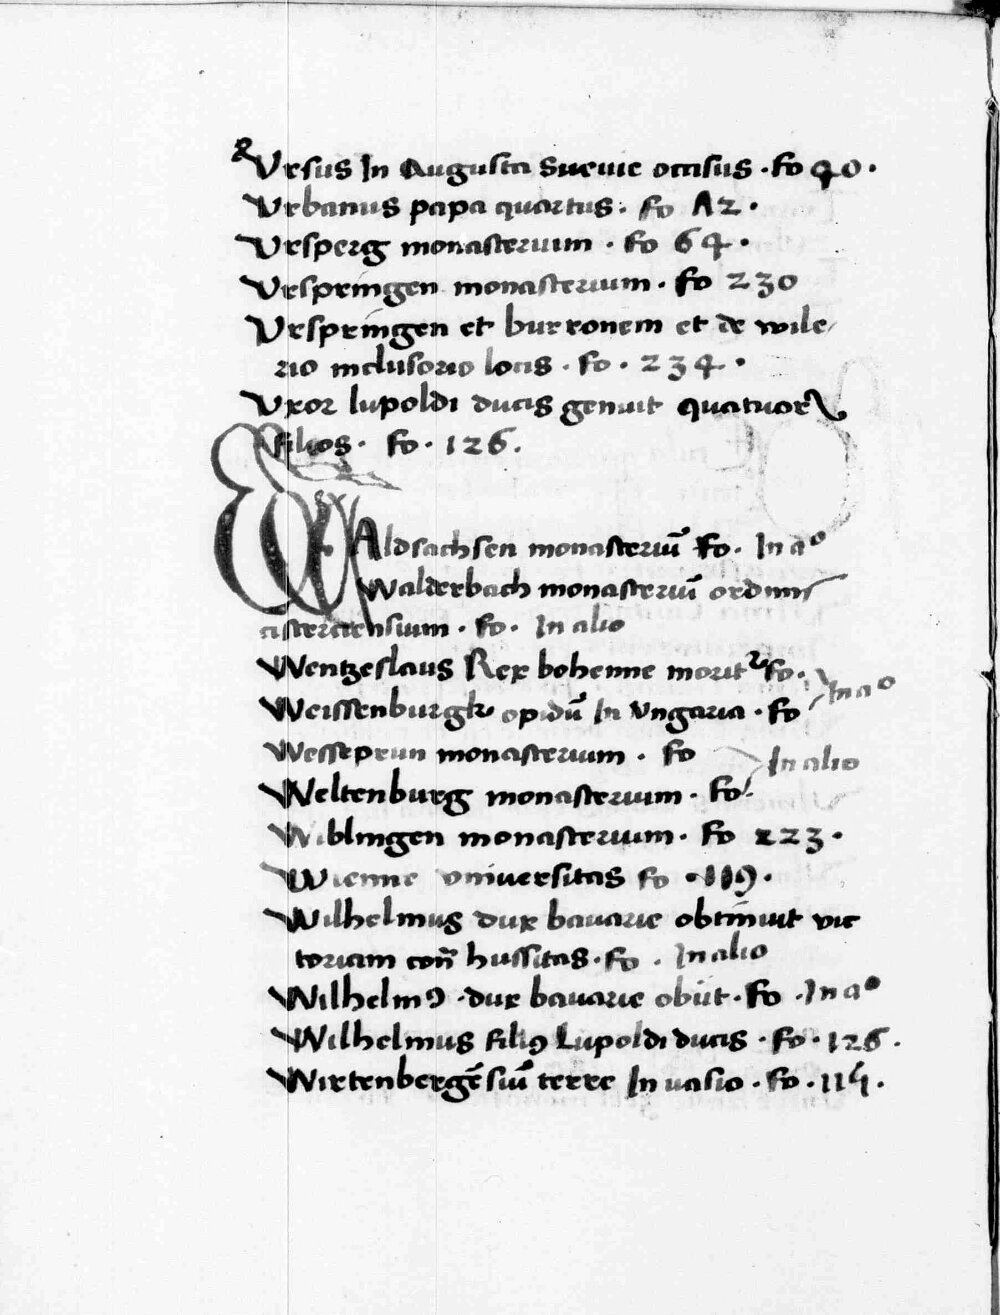 Vrsus In Augusta Sueuie occisus · fo 40 ·
Vrbanus papa quartus · fo 12 ·
Vrsperg monasterium · fo 64 ·
Vrspringen monasterium · fo 230
Vrspringen et burronem et de wile
rio inclusorio locis · fo · 234 ·
Vxor lupoldi ducis genuit quatuor
filios · fo · 126 ·
WAldsachsen monasteriū fo · In aº
Walderbach monasteriū ordinis
cisterciensium · fo · In alio
Wentzeslaus Rex bohemie morit᷑ fo · In aº
Weissenburgk opidū In Vngaria · fo
Wesseprun monasterium · fo In alio
Weltenburg monasterium · fo ·
Wiblingen monasterium · fo 223 ·
Wienne vniuersitas fo · 119 ·
Wilhelmus dux bauarie obtinuit vic
toriam con̄ hussitas · fo · In alio
Wilhelmꝰ dux bauarie obiit · fo · In aº
Wilhelmus filiꝰ Lupoldi ducis · fo · 126 ·
Wirtenbergēsiū terre Inuasio · fo · 114 ·